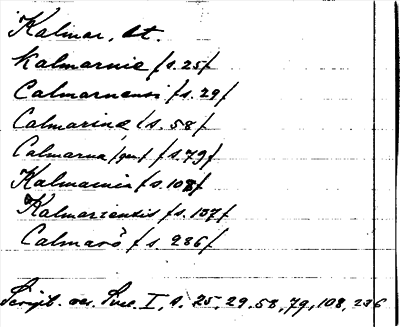 Kalmar, st.
Kalmarnie /s. 25/
Calmarnensi /s. 29/
Calmarine /s. 58/
Calmarna /gen/ /s. 79/
Kalmarnis /s. 108/
Kalmarensis /s. 137/
Calmarö /s. 236/
Script. rer. Svec. I, s. 25, 29, 58, 79, 108, 236